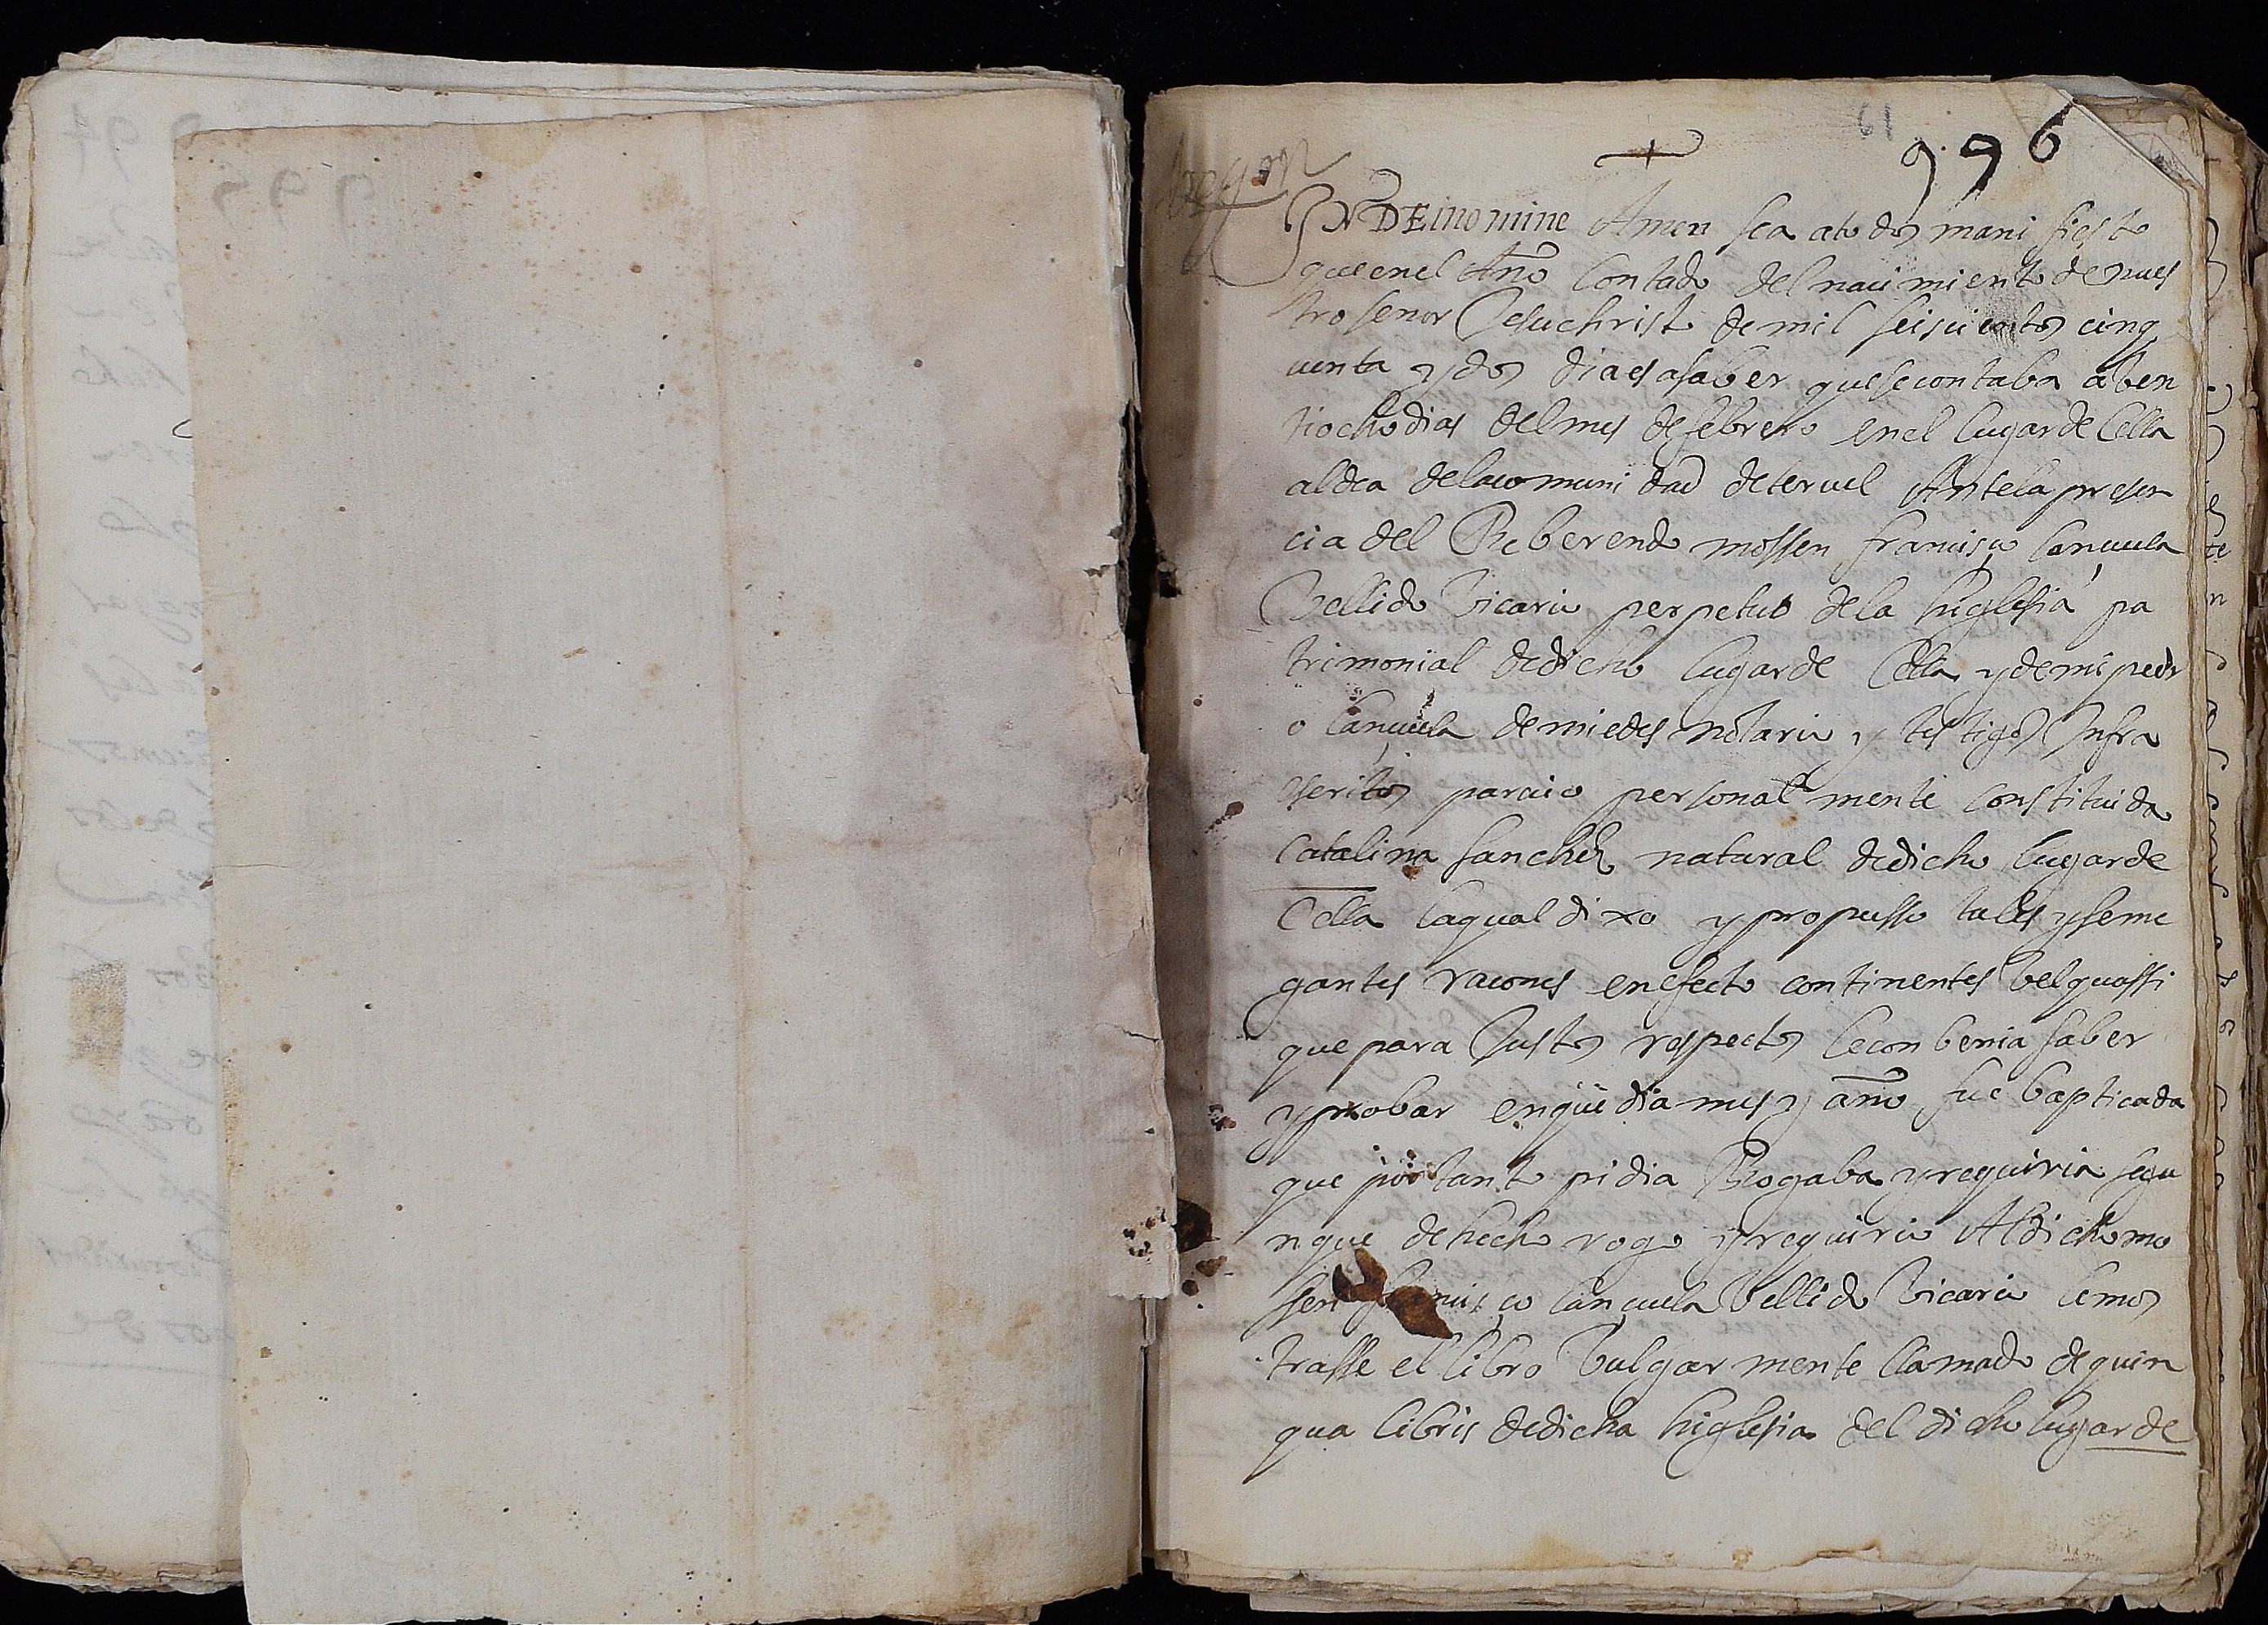 61
996
IN DEI nomine Amen sea atodos manifiesto
que en el Año Contado del nacimiento de nues
tro senor Jesuchristo de mil seiscientos cinq
uenta y dos dia es asaber que se contaba a ben
tiocho dias del mes de febrero en el lugar de Cella
aldea de la comunidad de teruel Antela presen
cia del Reberendo mossen francisco lançuela
Bellido Vicario perpetuo de la higlesia pa
trimonial de dicho lugar de Cella y de mi pedr
o lançuela de miedes notario y testigos Infra
scritos parecio personalmente constituida
Catalina sanchez natural de dicho lugar de
Cella la qual dixo y propusso tales y seme
gantes racones en efecto continentes vel quassi
que para Justos respectos le conbenia saber
y probar en que dia mes y año fue bapticada
que por tanto pidia Rogaba y requiria segu
n que de hecho rogo y requirio Al dicho mo
ssen co lançuela Bellido Vicario le mos
trasse el libro Vulgarmente llamado de quin
qua libris de dicha higlesia del dicho lugar de